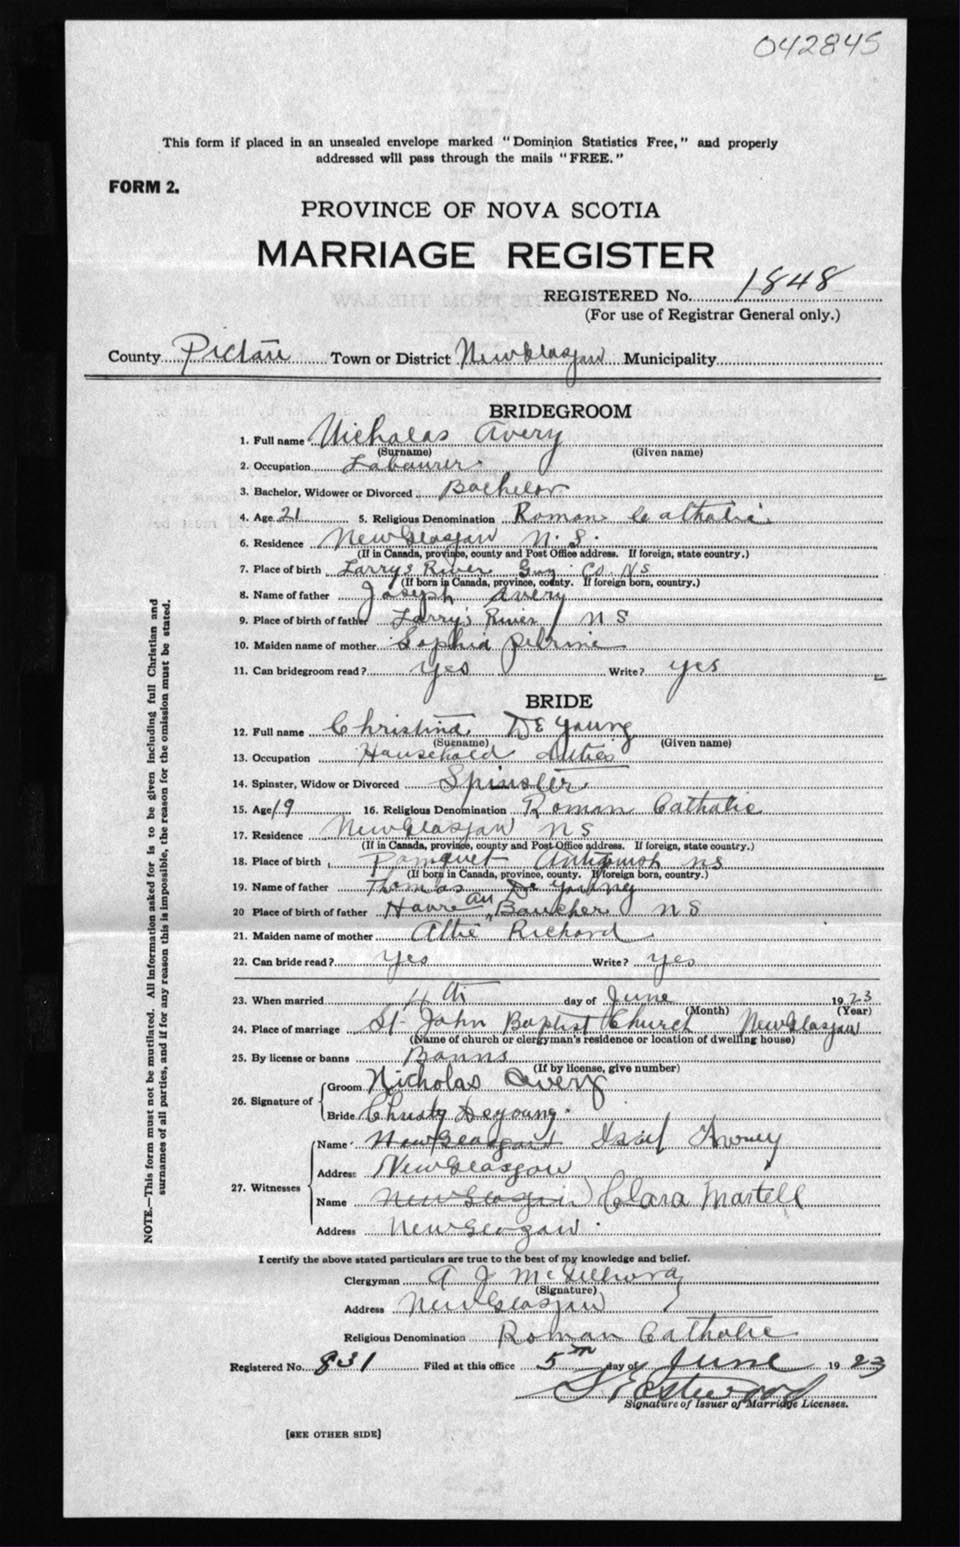 042845
This form if placed in an unsealed envelope marked "Dominion Statistics Free," and properly
addressed will pass through the mails "FREE."
FORM 2.
PROVINCE OF NOVA SCOTIA
MARRIAGE REGISTER
REGISTERED No. 1848
(For use of Registrar General only.)
County Pictou Town or District New Glasgow Municipality
BRIDEGROOM
1. Full name Nicholas Avery
(Surname) (Given name)
2. Occupation Labourer
3. Bachelor, Widower or Divorced Bachelor
4. Age 21 5. Religious Denomination Roman Catholic
6. Residence New Glasgow N. S.
(If in Canada, province, county and Post Office address. If foreign, state country.)
7. Place of birth Larrys River Guy Co. NS
(If born in Canada, province, county. If foreign born, country.)
8. Name of father Joseph Avery
9. Place of birth of father Larry's River N S
10. Maiden name of mother Sophia Petrine
11. Can bridegroom read? yes Write? yes
BRIDE
12. Full name Christina De Young
(Surname) (Given name)
13. Occupation Household duties
14. Spinster, Widow or Divorced Spinster
15. Age 19 16. Religious Denomination Roman Catholic
17. Residence New Glasgow N S
(If in Canada, province, county and Post Office address. If foreign, state country.)
18. Place of birth Pomquet Antigonish NS
(If born in Canada, province, county. If foreign born, country.)
19. Name of father Thomas De Young
20 Place of birth of father Havre au Boucher N S
21. Maiden name of mother Attie Richard
22. Can bride read? yes Write? yes
23. When married 4th day of June 1923
(Month) (Year)
24. Place of marriage St. John Baptist Church New Glasgow
(Name of church or clergyman's residence or location of dwelling house)
25. By license or banns Banns
(If by license, give number)
26. Signature of Groom Nicholas Avery
Bride Christy Deyoung.
27. Witnesses
Name New Glasgow
Address New Glasgow
Name New Glasgow Clara Martell
Address New Glasgow
I certify the above stated particulars are true to the best of my knowledge and belief.
Clergyman A J McGillivray
(Signature)
Address New Glasgow
Religious Denomination Roman Catholic
Registered No. 831 Filed at this office 5th day of June 1923
Eastwood
Signature of Issuer of Marriage Licenses.
[SEE OTHER SIDE]
NOTE.—This form must not be mutilated. All information asked for is to be given including full Christian and
surnames of all parties, and if for any reason this is impossible, the reason for the omission must be stated.